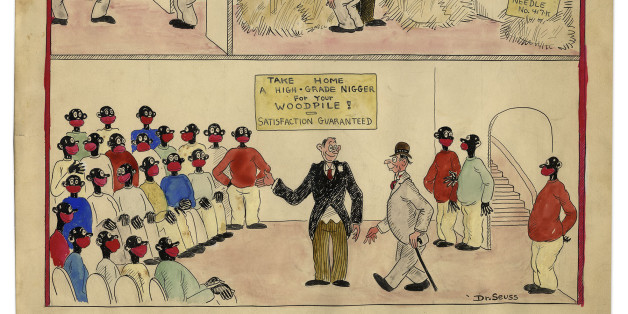 NEEDLE
No. 417
TAKE HOME
A HIGH-GRADE NIGGER
For Your
WOODPILE!
SATISFACTION GUARANTEED
Dr. Seuss